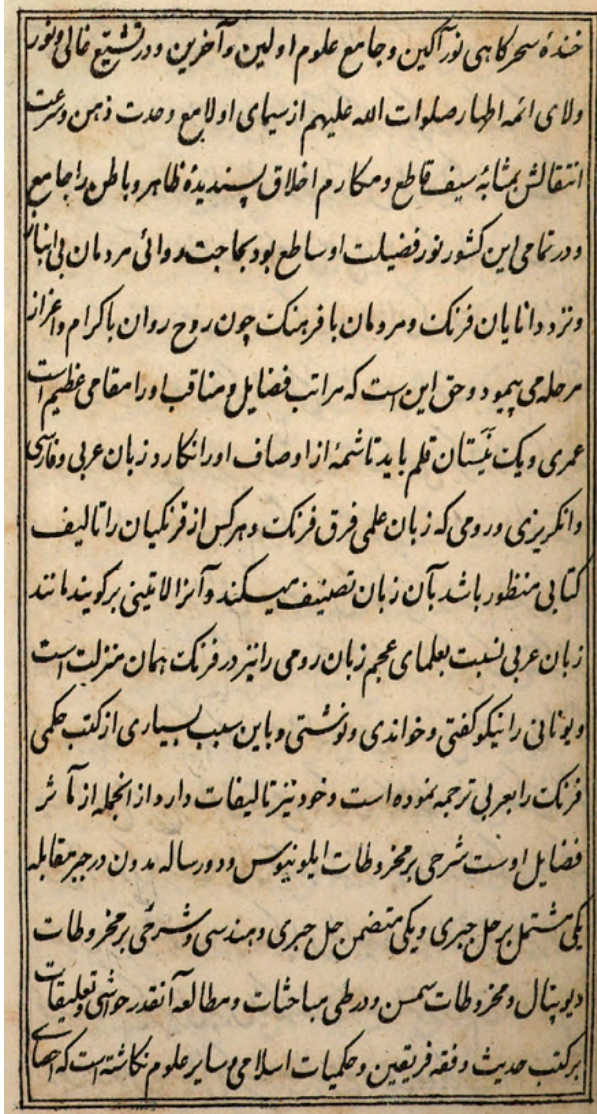 خندهٔ سحرکاهی نورآکین و جامع علوم اولین و آخرین و در تشیع غالی و نور
ولای ائمه اطهار صلوات الله علیهم از سیمای او لامع وحدت ذهن و سرعت
انتقالش بمثابهٔ سیف قاطع و مکارم اخلاق پسندیدهٔ ظاهر و باطن را جامع
و در تمامی این کشور نور فضیلت او ساطع بود بحاجت روائی مردمان بی انباز
و نزد دانایان فرنک و مردمان با فرهنک چون روح روان با کرام و اعزاز
مرحله می پیمود و حق این است که مراتب فضایل و مناقب او را مقامی عظیم است
عمری و یک نیستان قلم باید تا شمهٔ از اوصاف او را نکارد زبان عربی و فارسی
و انکریزی و رومی که زبان علمی فرق فرنک و هر کس از فرنکیان را تالیف
کتابی منظور باشد بآن زبان تصنیف میکند و آنرا لاتینی بر کویند مانند
زبان عربی نسبت بعلمای عجم زبان رومی را نیز در فرنک همان منزلت است
و یونانی را نیکو کفتی و خواندی و نوشتی و باین سبب بسیاری از کتب حکمی
فرنک را بعربی ترجمه نموده است و خود نیز تالیفات دارد از انجمله از مآثر
فضایل اوست شرحی بر مخروطات ابلونیوس و دو رساله مدون در جبر مقابله
یکی مشتمل بر حل جبری و یکی متضمن حل جبری و هندسی و شرحی بر مخروطات
دیوپتال و مخروطات سمسن و در طی مباحثات و مطالعه آنقدر حواشی و تعلیقات
بر کتب حدیث و فقه فریقین و حکمیات اسلامی و سایر علوم نکاشته است که احصای